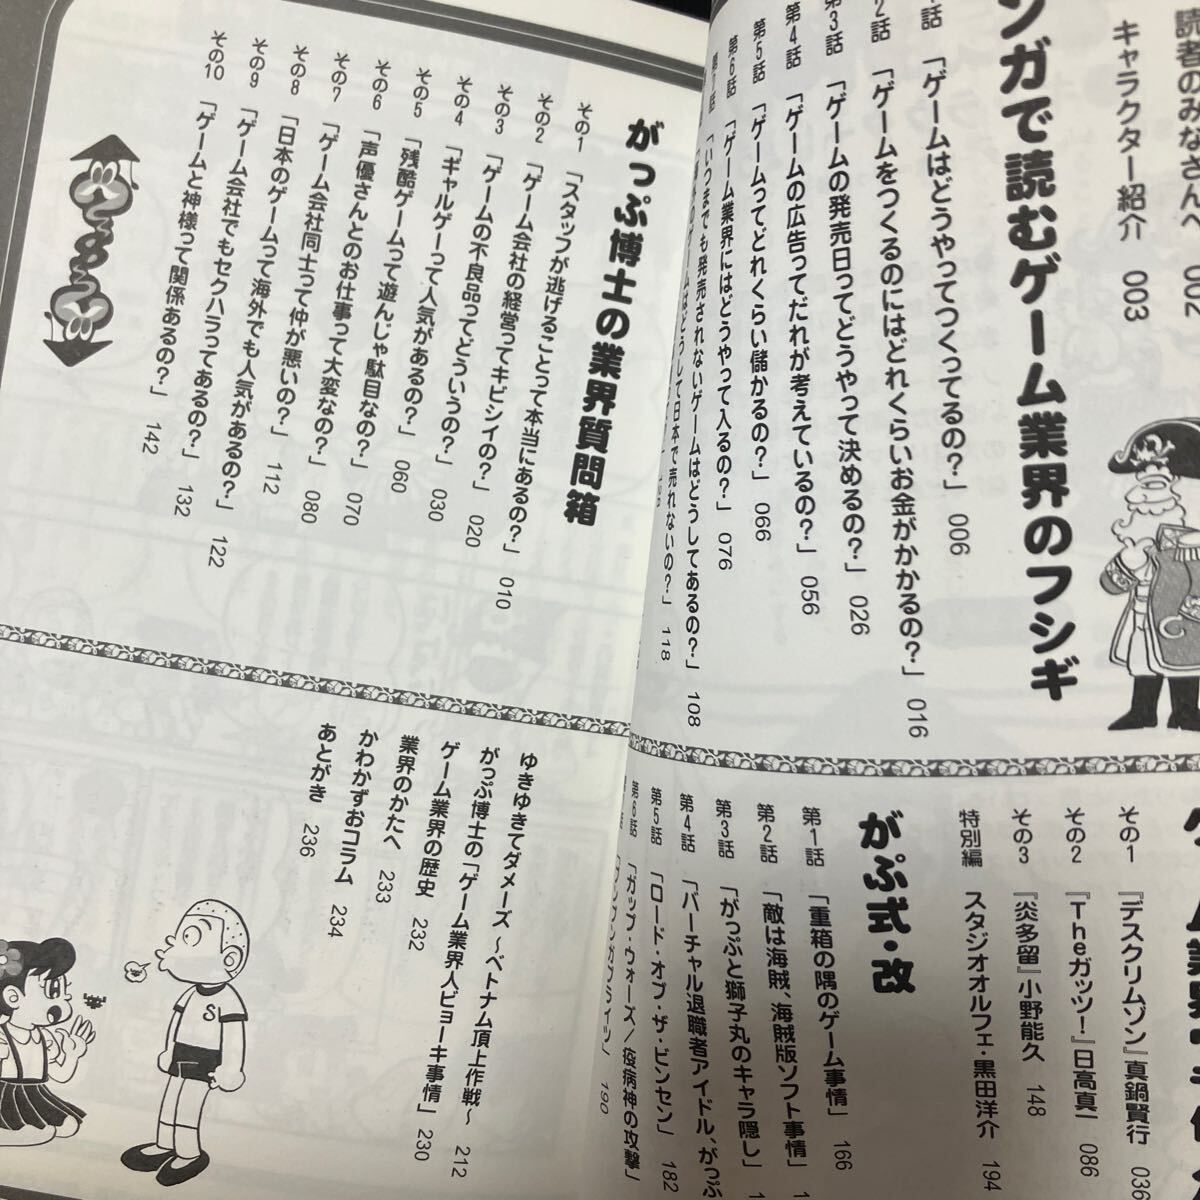 読者のみなさんへ 002
キャラクター紹介 003
ンガで読むゲーム業界のフシギ
話 「ゲームはどうやってつくってるの?」 006
2話 「ゲームをつくるのにはどれくらいお金がかかるの?」 016
第3話 「ゲームの発売日ってどうやって決めるの?」 026
第4話 「ゲームの広告ってだれが考えているの?」 056
第5話 「ゲームってどれくらい儲かるの?」 066
第6話 「ゲーム業界にはどうやって入るの?」 076
「いつまでも発売されないゲームはどうしてあるの?」 108
のゲームはどうして日本で売れないの?」 118
その1 『デスクリムゾン』真鍋賢行 036
その2 『Theガッツ!』日高真一 086
その3 『炎多留』小野能久 148
特別編 スタジオオルフェ・黒田洋介 194
がぷ式・改
第1話 「重箱の隅のゲーム事情」 166
第2話 「敵は海賊、海賊版ソフト事情」
第3話 「がっぷと獅子丸のキャラ隠し」
第4話 「バーチャル退職者アイドル、がっぷ
第5話 「ロード・オブ・ザ・ビンセン」 182
第6話 「ガップ・ウォーズ/疫病神の攻撃」
190
がっぷ博士の業界質問箱
その1 「スタッフが逃げることって本当にあるの?」 010
その2 「ゲーム会社の経営ってキビシイの?」 020
その3 「ゲームの不良品ってどういうの?」 030
その4 「ギャルゲーって人気があるの?」
その5 「残酷ゲームって遊んじゃ駄目なの?」 060
その6 「声優さんとのお仕事って大変なの?」 070
その7 「ゲーム会社同士って仲が悪いの?」 080
その8 「日本のゲームって海外でも人気があるの?」 112
その9 「ゲーム会社でもセクハラってあるの?」 122
その10 「ゲームと神様って関係あるの?」 132
142
ゆきゆきてダメーズ ～ベトナム頂上作戦～ 212
がっぷ博士の「ゲーム業界人ビョーキ事情」 230
ゲーム業界の歴史 232
業界のかたへ 233
かわかずおコラム 234
あとがき 236
S